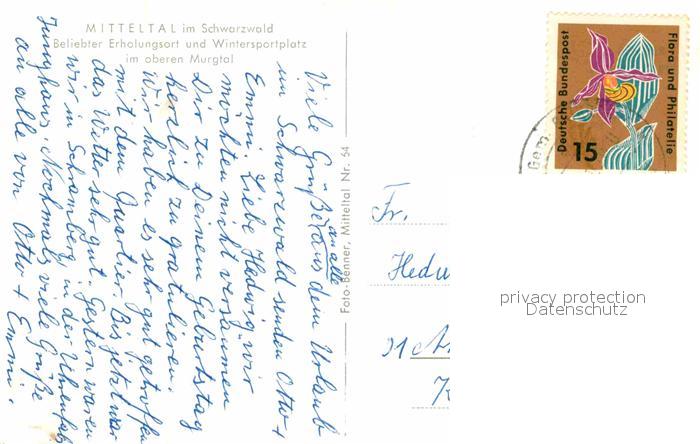 MITTELTAL im Schwarzwald
Beliebter Erholungsort und Wintersportplatz
im oberen Murgtal
Viele Grüße an alle aus dem Urlaub
im Schwarzwald senden Otto +
Emmi. Liebe Hedwig, wir
möchten nicht versäumen
Dir zu Deinem Geburtstag
herzlich zu gratulieren.
Wir haben es sehr gut getroffen
mit dem Quartier. Bis jetzt war
das Wetter sehr gut. Gestern waren
wir in Schramberg in der Uhrenfab.
Junghans. Nochmals viele Grüße
an alle von Otto + Emmi.
Foto-Benner, Mitteltal Nr. 54
Deutsche Bundespost
Flora und Philatelie
15
Gem.
Fr.
Hedw
privacy protection
Datenschutz